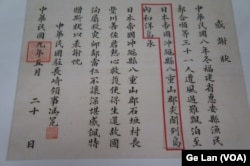 感謝狀
中華民國八年冬福建省惠安縣漁民
鄭合順等三十一人遭風遇難飄泊至
日本帝國沖繩縣八重山郡尖閣列島
內和洋島承
日本帝國沖繩縣八重山郡石垣村長
豐川善佐君熱心救護使得生還故國
洵屬救災恤鄰當仁不讓深堪感佩特
贈斯狀以表謝忱
中華民國駐長崎領事馮冕
中華民國九年五月二十日
Ge Len (VOA)
VOA